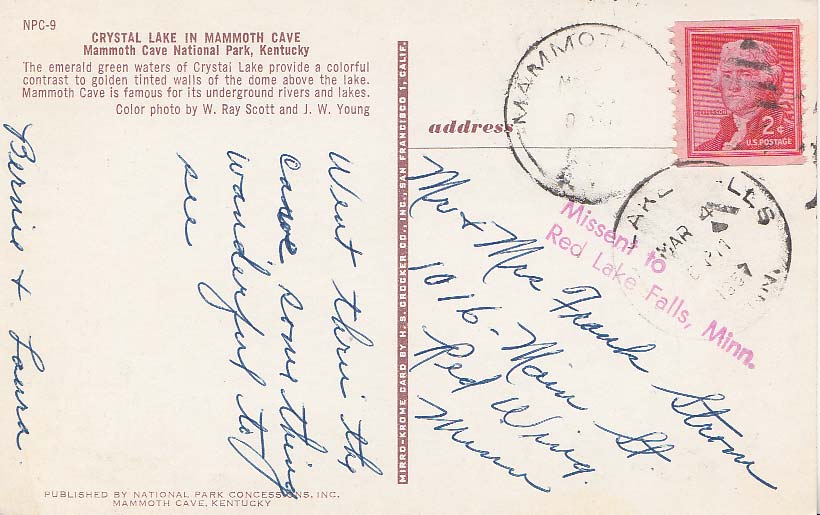 NPC-9
CRYSTAL LAKE IN MAMMOTH CAVE
Mammoth Cave National Park, Kentucky
The emerald green waters of Crystal Lake provide a colorful
contrast to golden tinted walls of the dome above the lake.
Mammoth Cave is famous for its underground rivers and lakes.
Color photo by W. Ray Scott and J. W. Young
Went thru the
cave something
wanderful to
see
Bernie & Laura.
PUBLISHED BY NATIONAL PARK CONCESSIONS, INC.
MAMMOTH CAVE, KENTUCKY
MIRRO-KROME CARD BY H. S. CROCKER CO., INC., SAN FRANCISCO 1, CALIF.
address
MAMMOTH
2¢
U.S. POSTAGE
LAKE FALLS
MAR 4
PM
Missent to
Red Lake Falls, Minn.
Mr & Mrs Frank Strom
1016 - Main St.
Red Wing.
Minn